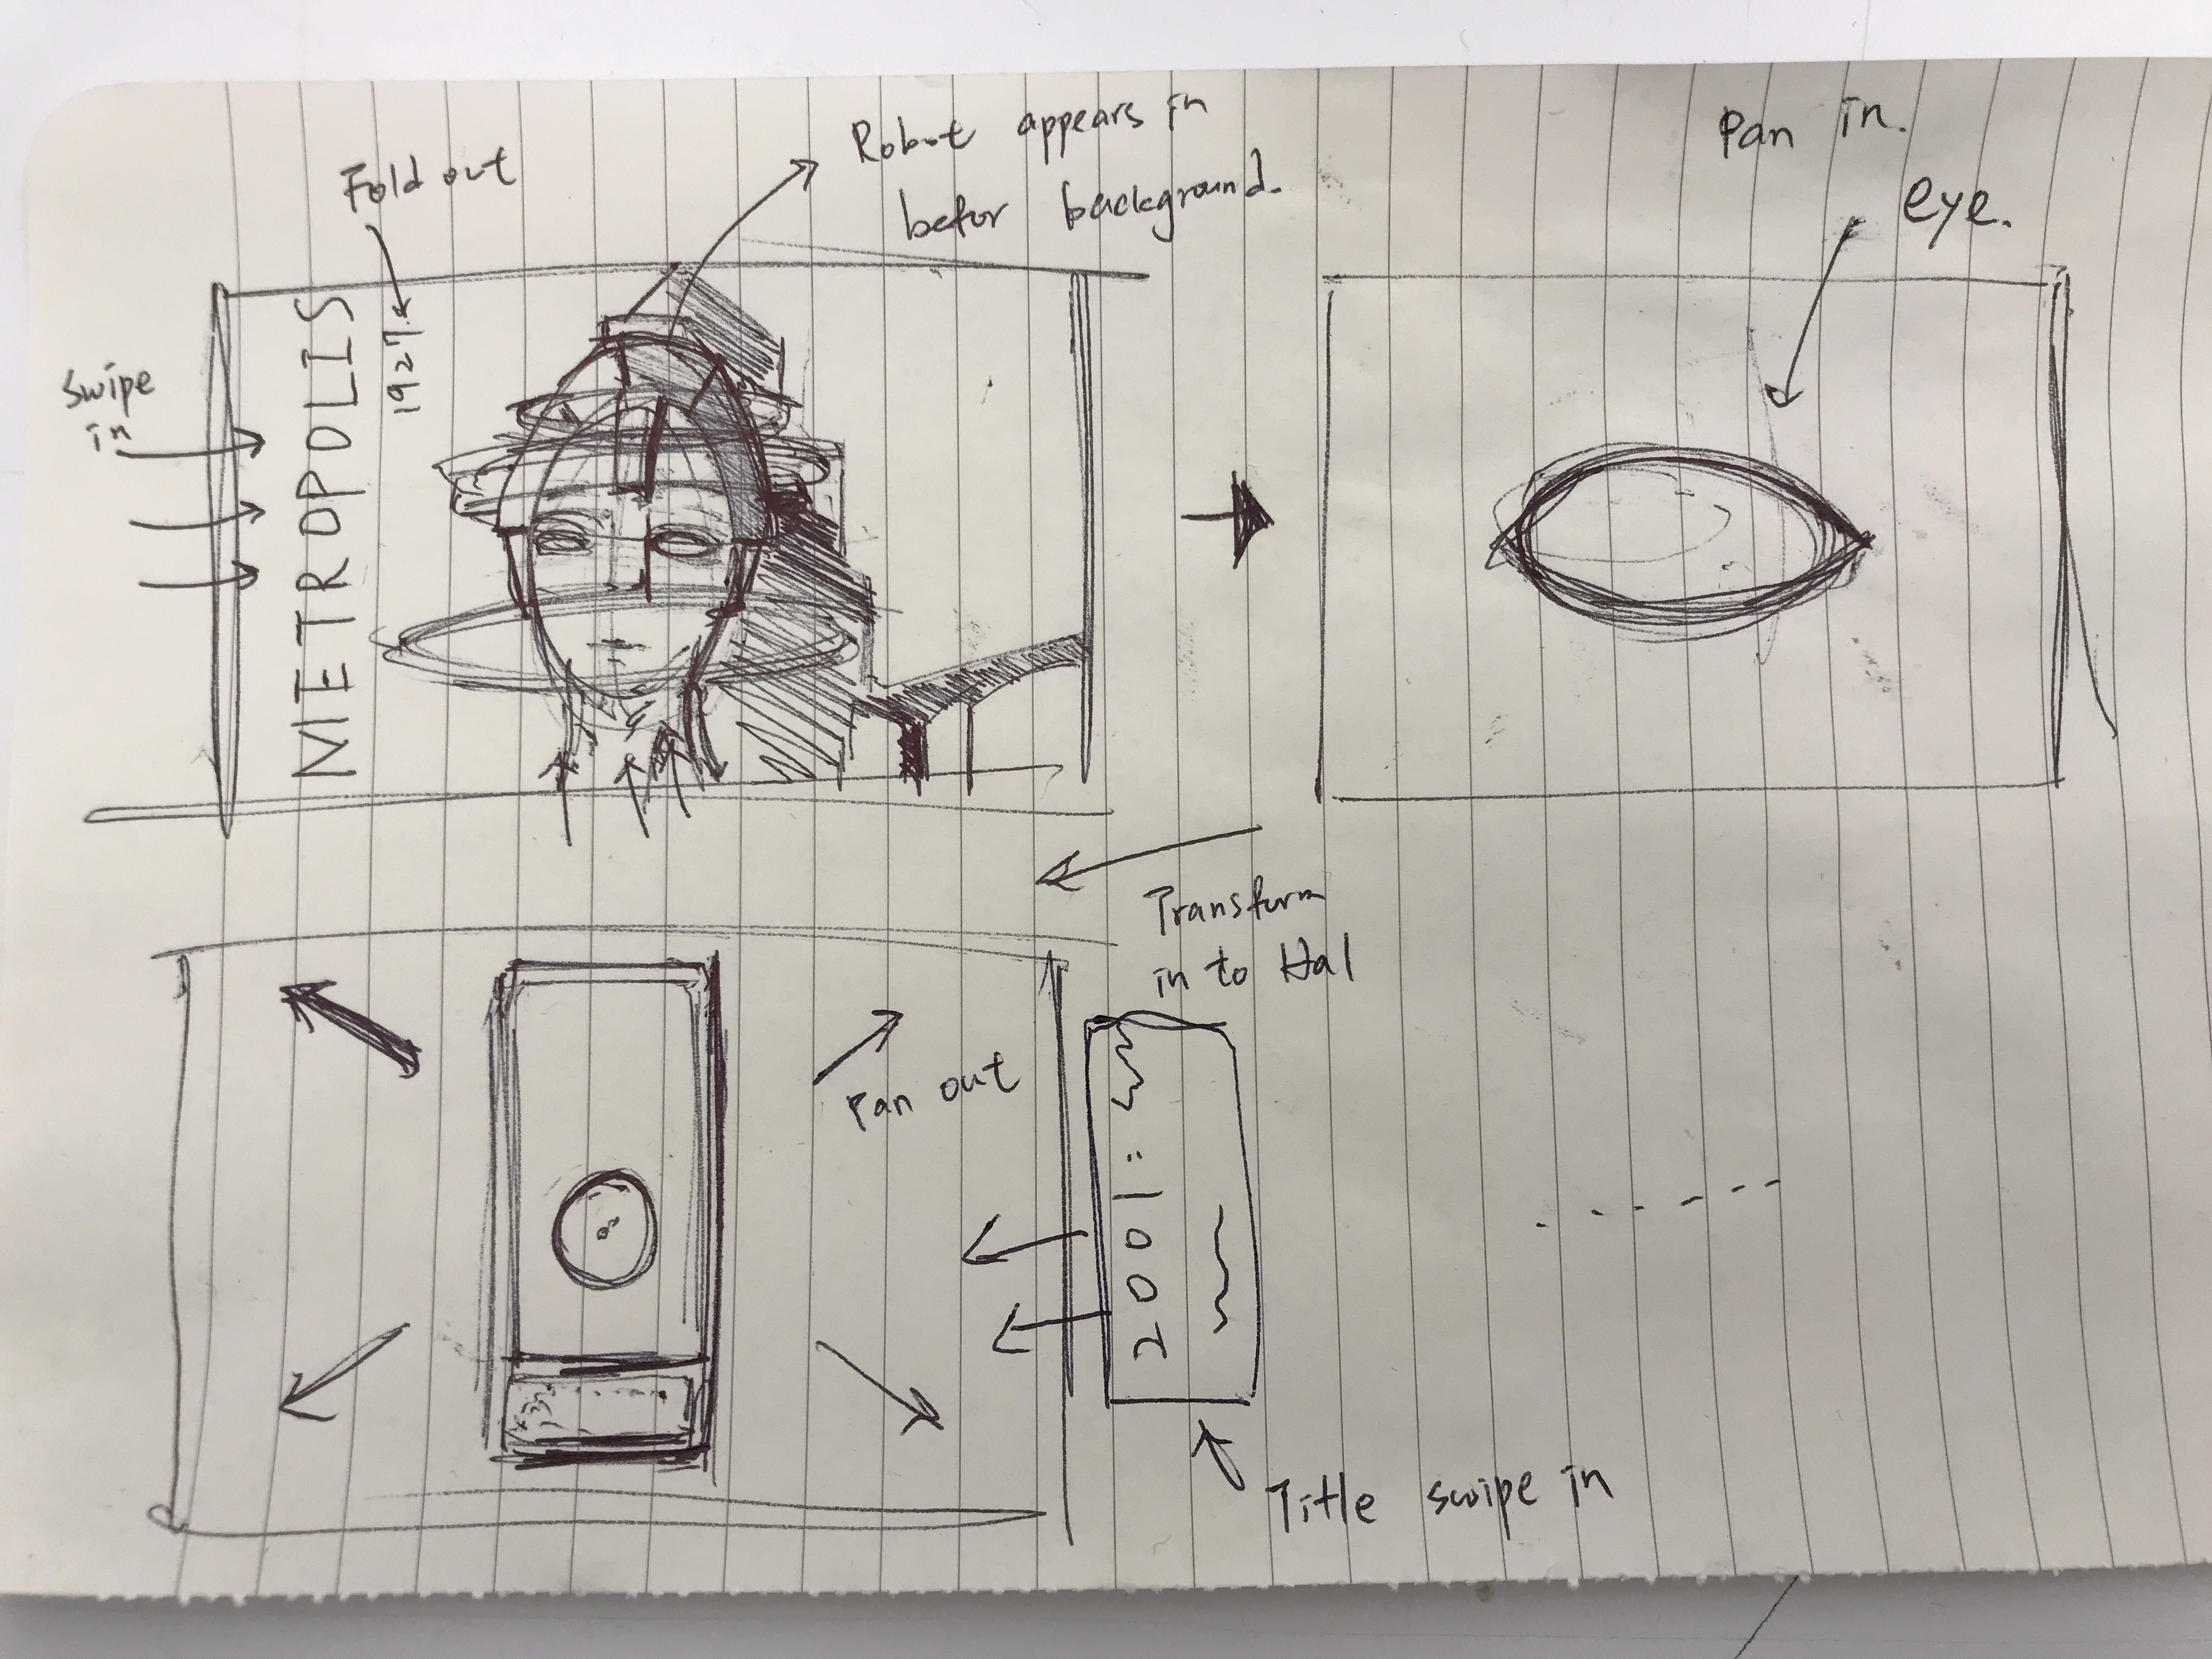 Fold out
Robot appears in
befor background.
Pan in.
eye.
swipe
in
METROPOLIS
1927.
Transform
in to Hal
Pan out
2001:
Title swipe in